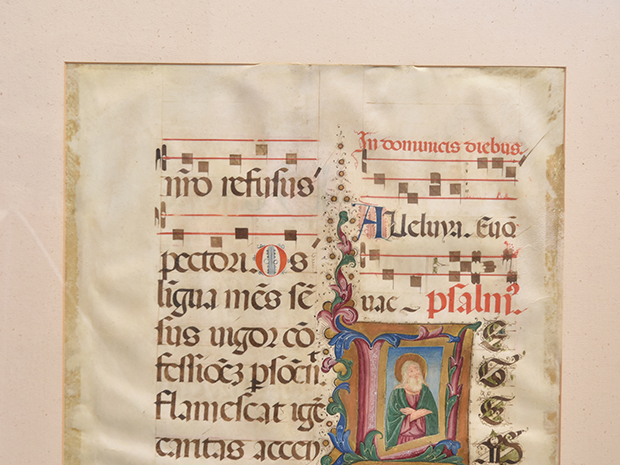 nr̄o refusus
pectori. Os
ligua mēs sē
sus uigor cō
fessionēz
flamescat igē
caritas accen
In dominicis diebus.
Alleluya. Euō
uae psalmꝰ
L E
G
E